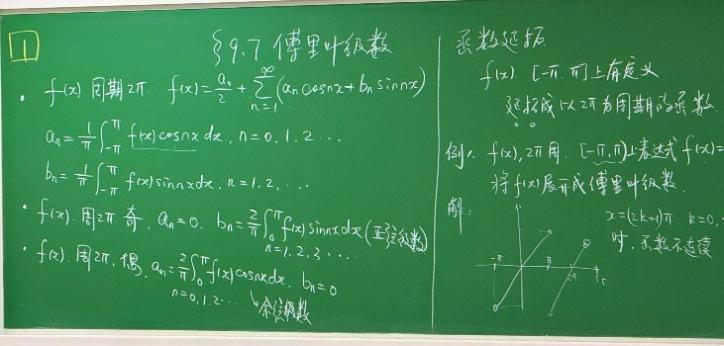 1
§9.7 傅里叶级数
· f(x) 周期2π. f(x)=a₀/2+∑_{n=1}^{∞}(aₙcosnx+bₙsinnx)
aₙ=1/π∫_{-π}^{π}f(x)cosnxdx, n=0,1,2...
bₙ=1/π∫_{-π}^{π}f(x)sinnxdx, n=1,2,...
· f(x).周2π.奇, aₙ=0. bₙ=2/π∫₀^{π}f(x)sinnxdx(正弦级数)
n=1,2,3....
· f(x).周2π.偶, aₙ=2/π∫₀^{π}f(x)cosnxdx. bₙ=0
n=0,1,2... 余弦级数
函数延拓
f(x) [-π,π]上有定义
延拓成以2π为周期的函数
例1. f(x), 2π周. [-π,π)上表达式f(x)=
将f(x)展开成傅里叶级数.
解:
x=(2k+1)π k=0,
时,函数不连续
-π π 2π